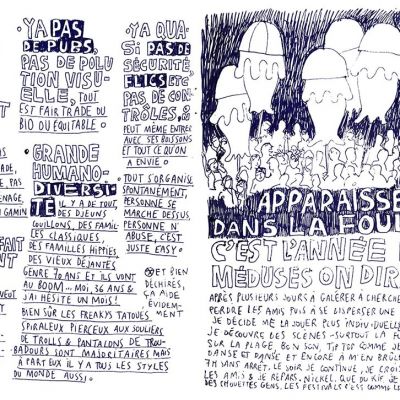 ·YA PAS
DE PUBS,
PAS DE POLU
TION VISU-
ELLE, TOUT
EST FAIR TRADE OU
BIO OU EQUITABLE.
GRANDE
HUMANO-
DIVERSI-
TÉ IL Y A DE TOUT,
DES DJEUNS
COUILLONS, DES FAMIL
LES CLASSIQUES,
DES FAMILLES HIPPIES,
DES VIEUX DÉJANTÉS
GENRE 70 ANS ET ILS VONT
AU BOOM... MOI, 36 ANS &
J'AI HÉSITÉ UN MOIS!
BIEN SÛR LES FREAKYS TATOUÉS
SPIRALEUX PIERCEUX AUX SOULIERS
DE TROLLS & PANTALONS DE TROU-
BADOURS SONT MAJORITAIRES MAIS
À PART EUX IL Y A TOUS LES STYLES
DU MONDE AUSSI.
·YA QUA-
SI PAS DE
SÉCURITÉ,
FLICS ETC
PAS DE CON
TRÔLES, &
PEUT MÊME ENTRER
AVEC SES BOISSONS
ET TOUT CE QU'ON
A ENVIE
TOUT S'ORGANISE
SPONTANÉMENT,
PERSONNE SE
MARCHE DESSUS,
PERSONNE N'
ABUSE, C'EST
JUSTE EASY
ET BIEN
DÉCHIRÉS,
ÇA AIDE
ÉVIDEM-
MENT
ADE,
PAS
ENAGE,
GAMIN
FAIT
NT
VEUT
APPARAISSE
DANS LA FOUL
C'EST L'ANNÉE
MÉDUSES ON DIR
APRÈS PLUSIEURS JOURS À GALÉRER À CHERCHE
PERDRE LES AMIS PUIS À SE DISPERSER UNE
JE DÉCIDE ME LA JOUER PLUS INDIVIDUELLE
JE DÉCOUVRE DES SCÈNES - SURTOUT LA F
SUR LA PLAGE, BON SON, TIP TOP COMME J
DANSE ET DANSE ET ENCORE À M'EN BRÛLE
7H SANS ARRÊT. LE SOIR JE CONTINUE, JE CROIS
LES AMIS & JE REPARS. NICKEL. QUE DU KIF. JE
DES CHOUETTES GENS. LES FESTIVALS C'EST COMME L